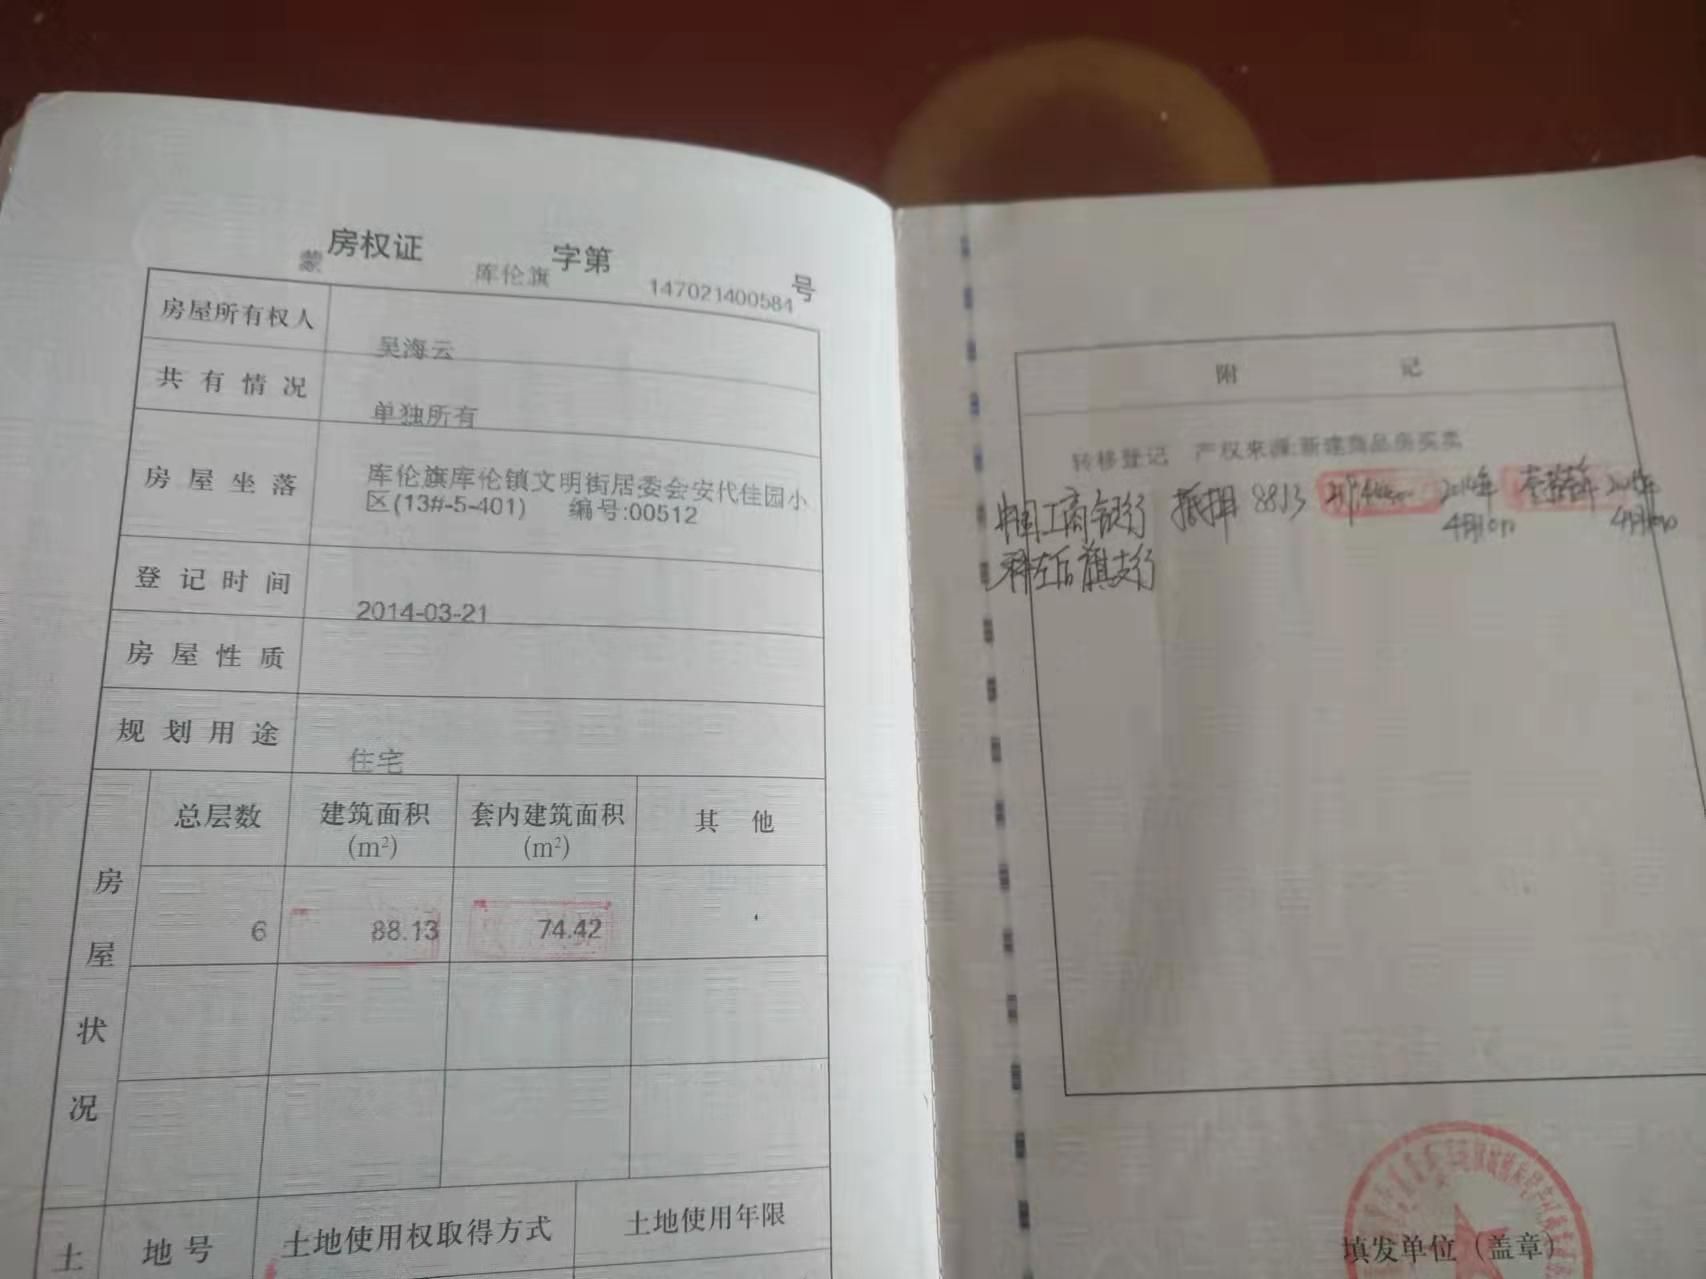 蒙 房权证 库伦旗 字第 147021400584 号
房屋所有权人 吴海云
共有情况 单独所有
房屋坐落 库伦旗库伦镇文明街居委会安代佳园小
区(13#-5-401) 编号:00512
登记时间 2014-03-21
房屋性质
规划用途 住宅
房屋状况
总层数 建筑面积 (m²) 套内建筑面积 (m²) 其他
6 88.13 74.42
土 地号 土地使用权取得方式 土地使用年限
附记
转移登记 产权来源:新建商品房买卖
中国工商银行 抵押 8813 2014年 4月10日
科左后旗支行
填发单位(盖章)